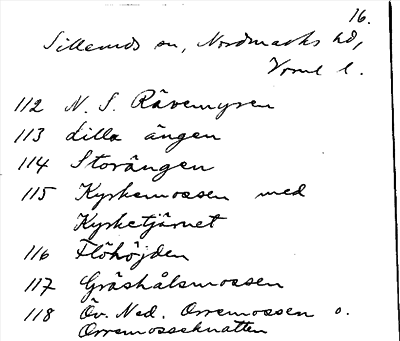 16.
Silleruds sn, Nordmarks hd,
Verml l.
112 N. S. Rävemyren
113 Lilla ängen
114 Storängen
115 Kyrkemossen med
Kyrketjärnet
116 Flöhöjden
117 Gräshålsmossen
118 Öv. Ned. Orremossen o.
Orremosseknatten